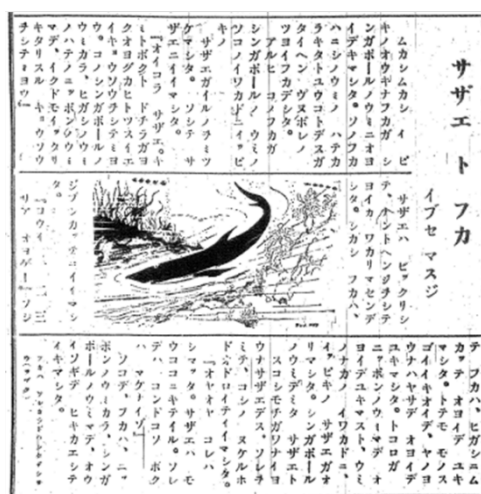 サザエ ト フカ
イブセ マスジ
ムカシムカシ イッピ
キノオウキナフカガ シ
ンガポールノウミニオヨ
イデキマシタ。ソノフカ
ハニシノウミノ ハテカ
ラキタトユウコトデスガ
タイヘン ヅヌボレノ
ツヨイフカデシタ。
アルヒ コノフカガ
シンガポールノ ウミノ
ソコノイワカドニ、イッピ
キノ
サザエガイルノヲミツ
ケマシタ。ソシテ サ
ザエニイイマシタ。
『オイコラ サザエ。キ
ミトボクト ドチラガヨ
クオヨグカヒトツスイエ
イキョウソウヲシテミヨ
ウ。コノ シンガポールノ
ウミカラ、ヒガシノウミ
ノハテノニッポンノウミ
マデ、イクドモイッタリ
キタリスル キョウソウ
ヲシテミヨウ』
サザエハ ビックリシ
テ、ナントヘンジヲシテ
ヨイカ、ワカリマセンデ
シタ。シカシ フカハ、
ジブンカッテニイイマシ
タ。
『ヨウイ、一、二、三
ソシ
テ フカハ、ヒガシニム
カッテ オヨイデ ユキ
マシタ。トテモ モノス
ゴイイキオイデ、ヤノヨ
ウナハヤサデ オヨイデ
ユキマシタ。トコロガ
ニッポンノウミマデ オ
ヨイデユキマスト、ウミ
ノナカノ イワカドニ、
イッピキノ サザエガオ
リマシタ。シンガポール
ノウミデミタ サザエト
スコシモチガワナイヨ
ウナサザエデス。ソレヲ
ミテ、コシノ ヌケルホ
ドオドロイテイイマシタ。
『オヤオヤ コレハ
シマッタ。サザエハ モ
ウココニキテイル。ソレ
デハ、コンドコソ ボク
ハ マケナイゾ』
ソコデ、フカハ、ニッ
ポンノウミカラ、シンガ
ポールノウミマデ、オウ
イソギデ ヒキカエシテ
イキマシタ。